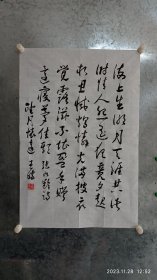 海上生明月天涯共此
时情人怨遥夜竟夕起
相思灭烛怜光满披衣
觉露滋不堪盈手赠
还寝梦佳期 张九龄诗
望月怀远 王
2023.11.28 12:52